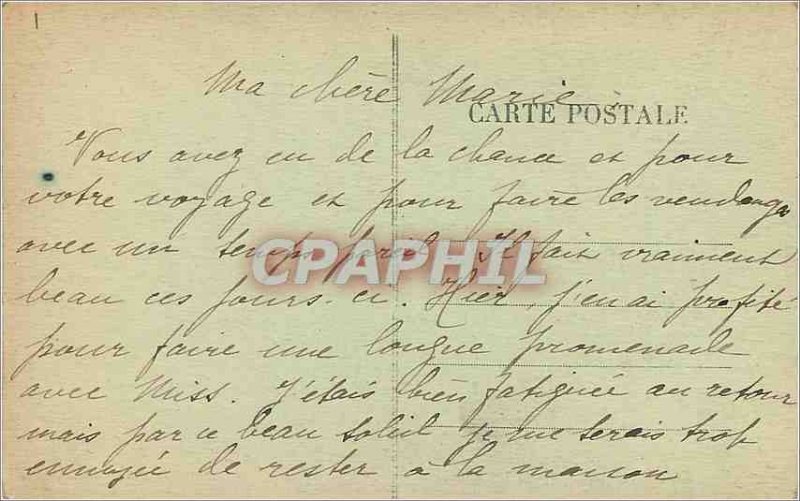 Ma chère Marie
CARTE POSTALE
Vous avez eu de la chance et pour
votre voyage et pour faire les vendanges
avec un temps pareil. Il fait vraiment
CPAPHIL
beau ces jours-ci. Hier, j'en ai profité
pour faire une longue promenade
avec Miss. J'étais bien fatiguée au retour
mais par ce beau soleil je me serais trop
ennuyée de rester à la maison